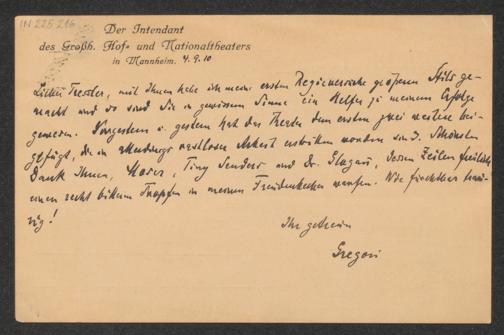 IN 225 216
Der Intendant
des Großh. Hof- und Nationaltheaters
in Mannheim. 4.9.10
Lieber Tressler, mit Ihnen habe ich meine ersten Regieversuche größeren Stils ge-
macht und so sind Sie in gewissem Sinne ein Helfer zu meinem Erfolge
gewesen. Vorgestern u. gestern hat das Theater dem ersten zwei weitere bei-
gefügt, die in rastloser Arbeit erstritten worden sind. Schönsten
Dank Ihnen, Moser, Tiny Senders und Dr. Glogau, dessen Zeilen freilich
einen recht bittern Tropfen in meinen Freudenbecher warfen. Wie furchtbar trau-
rig!
Ihr getreuer
Gregori